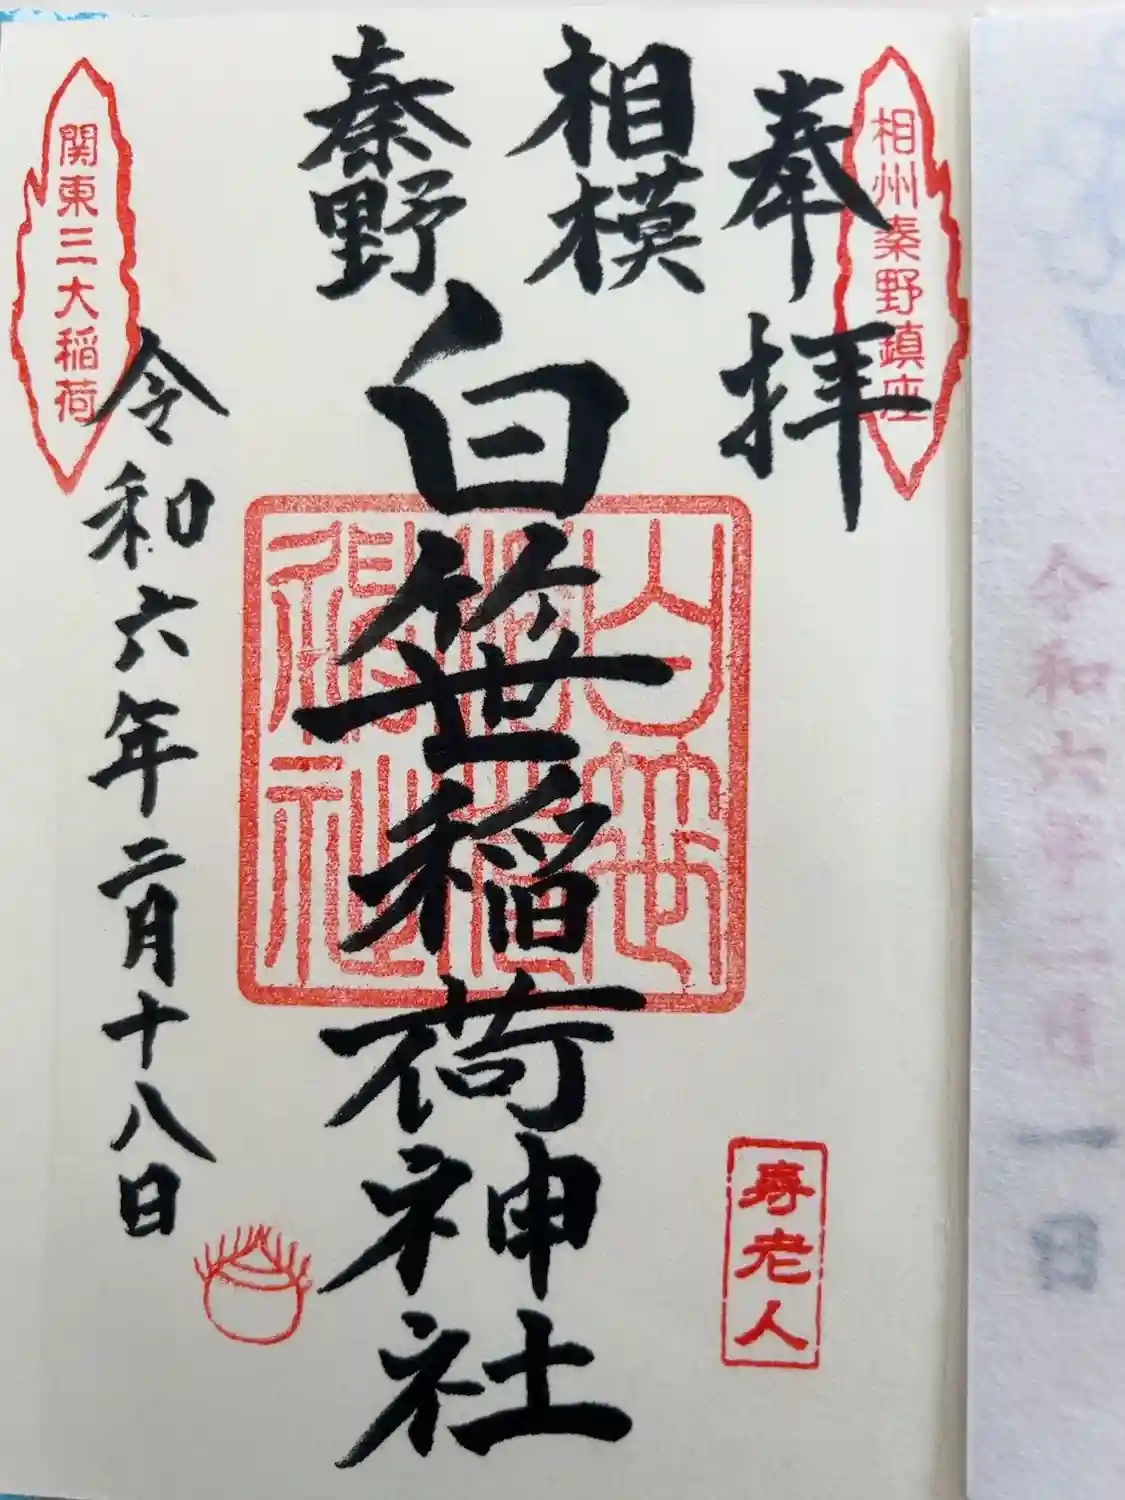 相州秦野鎮座
奉拝
相模
秦野
白笹稲荷神社
白笹稲荷神社
寿老人
関東三大稲荷
令和六年二月十八日
令和六年二月
一日